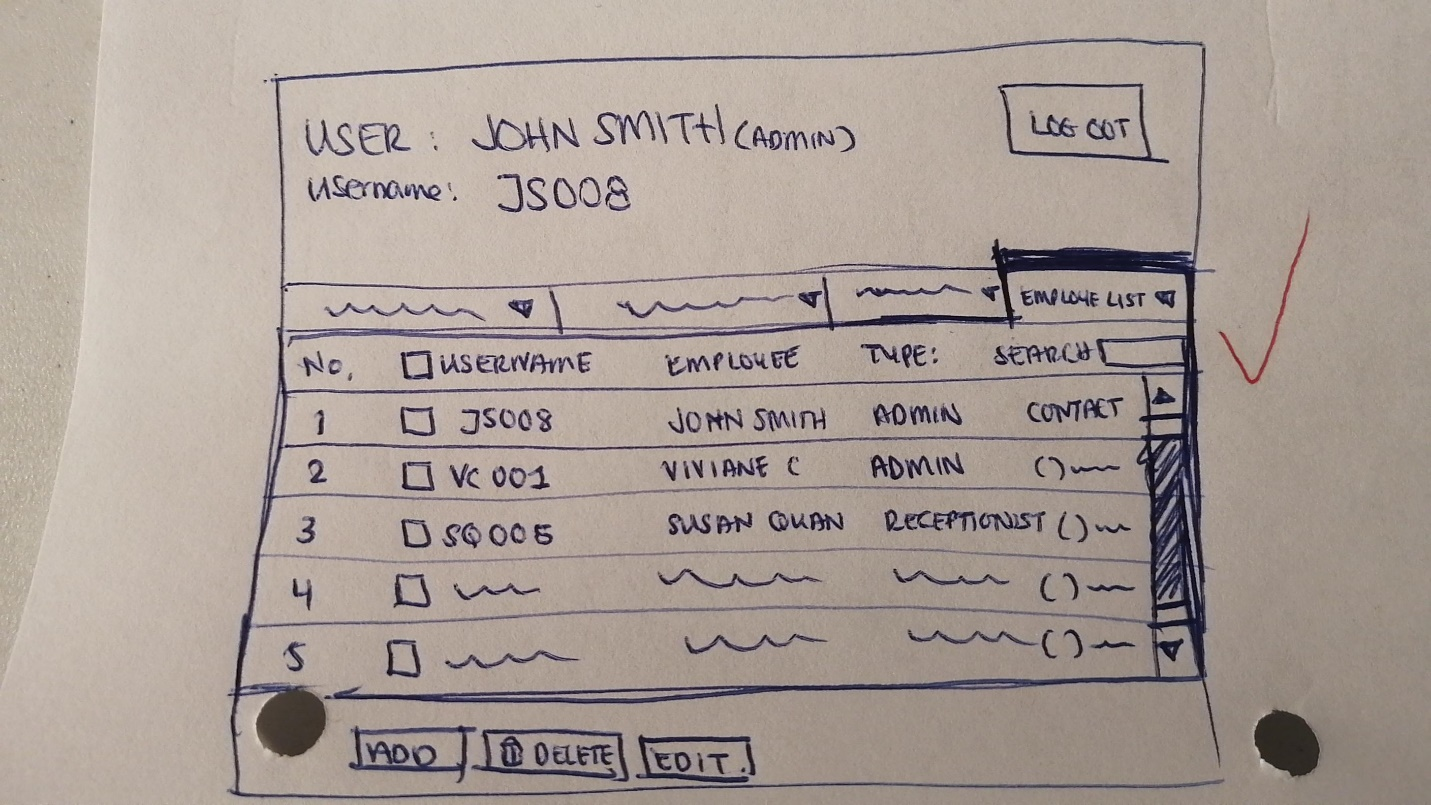 USER : JOHN SMITH (ADMIN)
LOG OUT
Username: JS008
EMPLOYE LIST
No. USERNAME EMPLOYEE TYPE: SEARCH
1 JS008 JOHN SMITH ADMIN CONTACT
2 VC 001 VIVIANE C ADMIN ()
3 SQ005 SUSAN QUAN RECEPTIONIST ()
4 ()
5 ()
ADD DELETE EDIT.